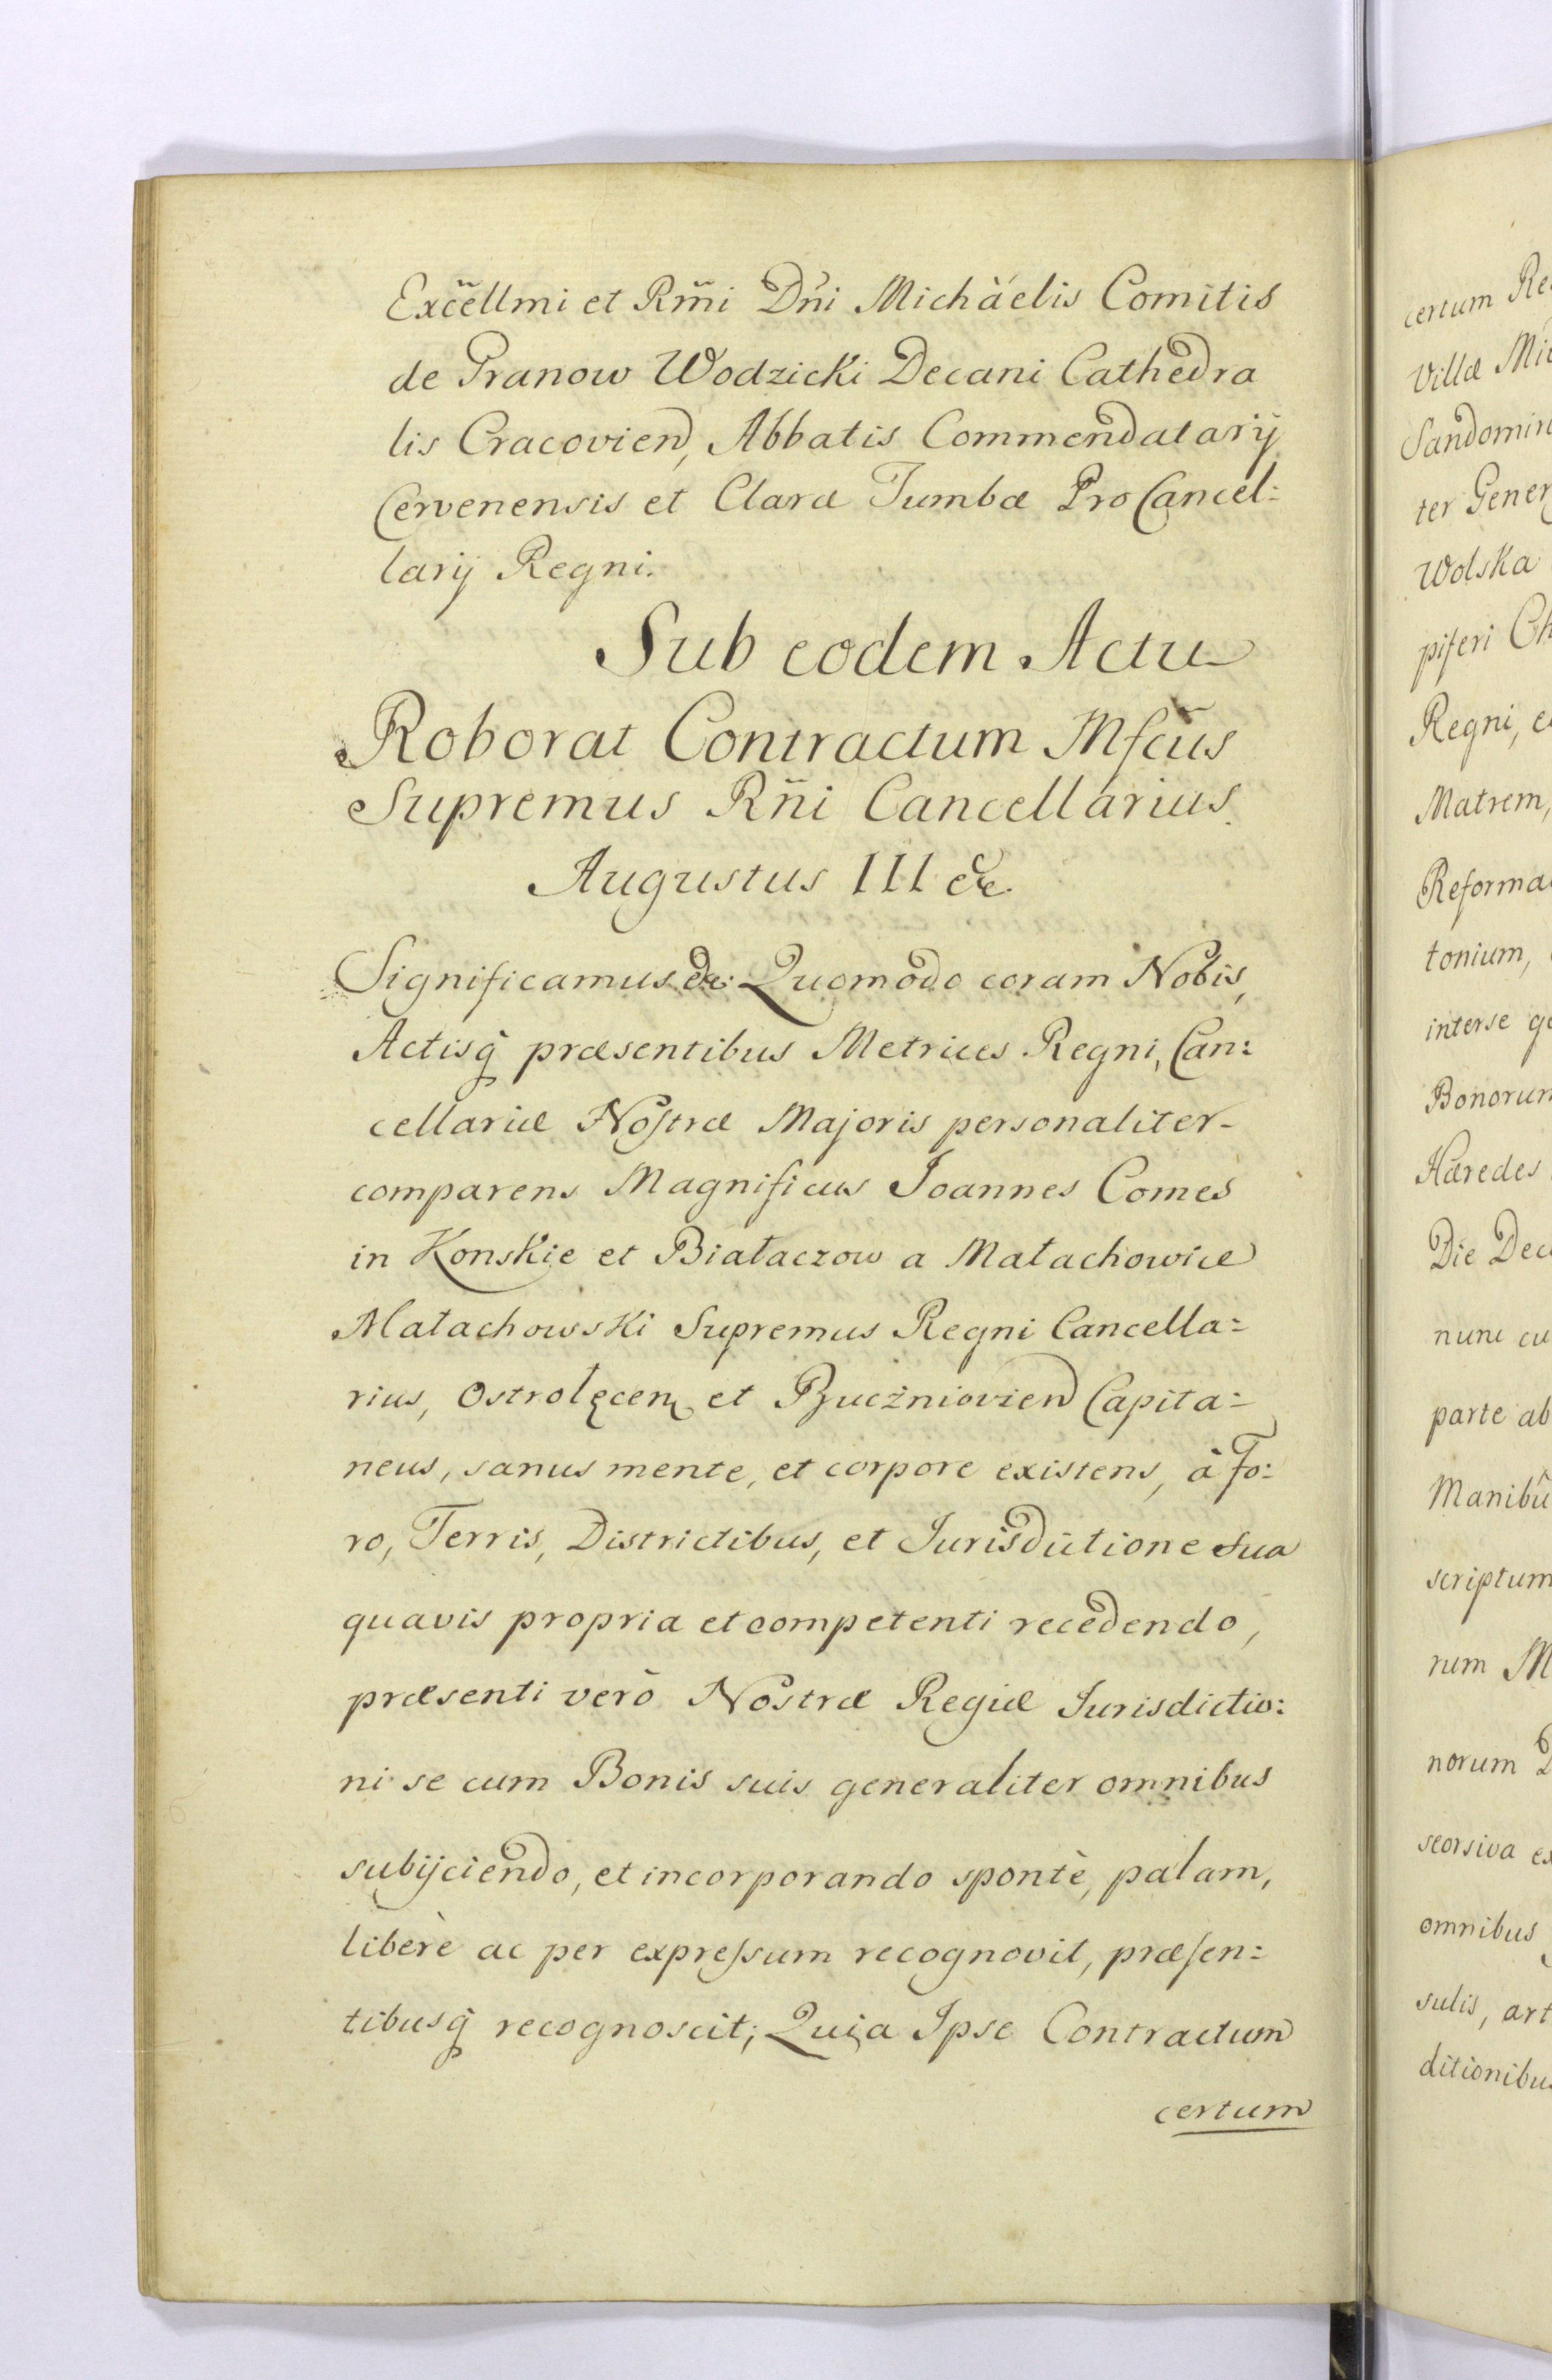 Exc̃ellmi et Rm̃i Dñi Michäelis Comitis
de Granow Wodzicki Decani Cathedra
lis Cracovien, Abbatis Commendatarÿ
Cervenensis et Claræ Tumbæ ProCancel:
larÿ Regni.
Sub eodem Actu
Roborat Contractum Mfcũs
Supremus Rñi Cancellarius.
Augustus III &c.
Significamus &c: Quomodo coram Nobis,
Actisq̃ præsentibus Metrices Regni, Can:
cellariæ Nostræ Majoris personaliter
comparens Magnificus Joannes Comes
in Konskie et Białaczow a Małachowice
Małachowski Supremus Regni Cancella=
rius, Ostrołęcen et Buczniovien Capita=
neus, sanus mente, et corpore existens, à Fo:
ro, Terris, Districtibus, et Jurisdictione sua
quavis propria et competenti recedendo,
præsenti verò Nostræ Regiæ Jurisdictio:
ni se cum Bonis suis generaliter omnibus
subÿciendo, et incorporando spontè, palam,
liberè ac per expressum recognovit, præsen:
tibusq̃ recognoscit; Quia Ipse Contractum
certum
certum
Villæ
Wolska
Regni,
Matrem,
tonium,
interse
Hæredes
Die
nunc
parte ab
norum
seorsiva
omnibus
sulis,